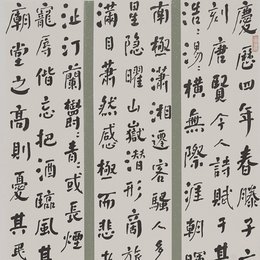 慶曆四年春滕子
刻唐賢今人詩賦于
浩々湯々橫無際涯朝暉
南極瀟湘遷客騷人多
星隱曜山嶽潛形商旅
滿目蕭然感極而悲者
沚汀蘭鬱々青々或長煙
寵辱偕忘把酒臨風其
廟堂之高則憂其民